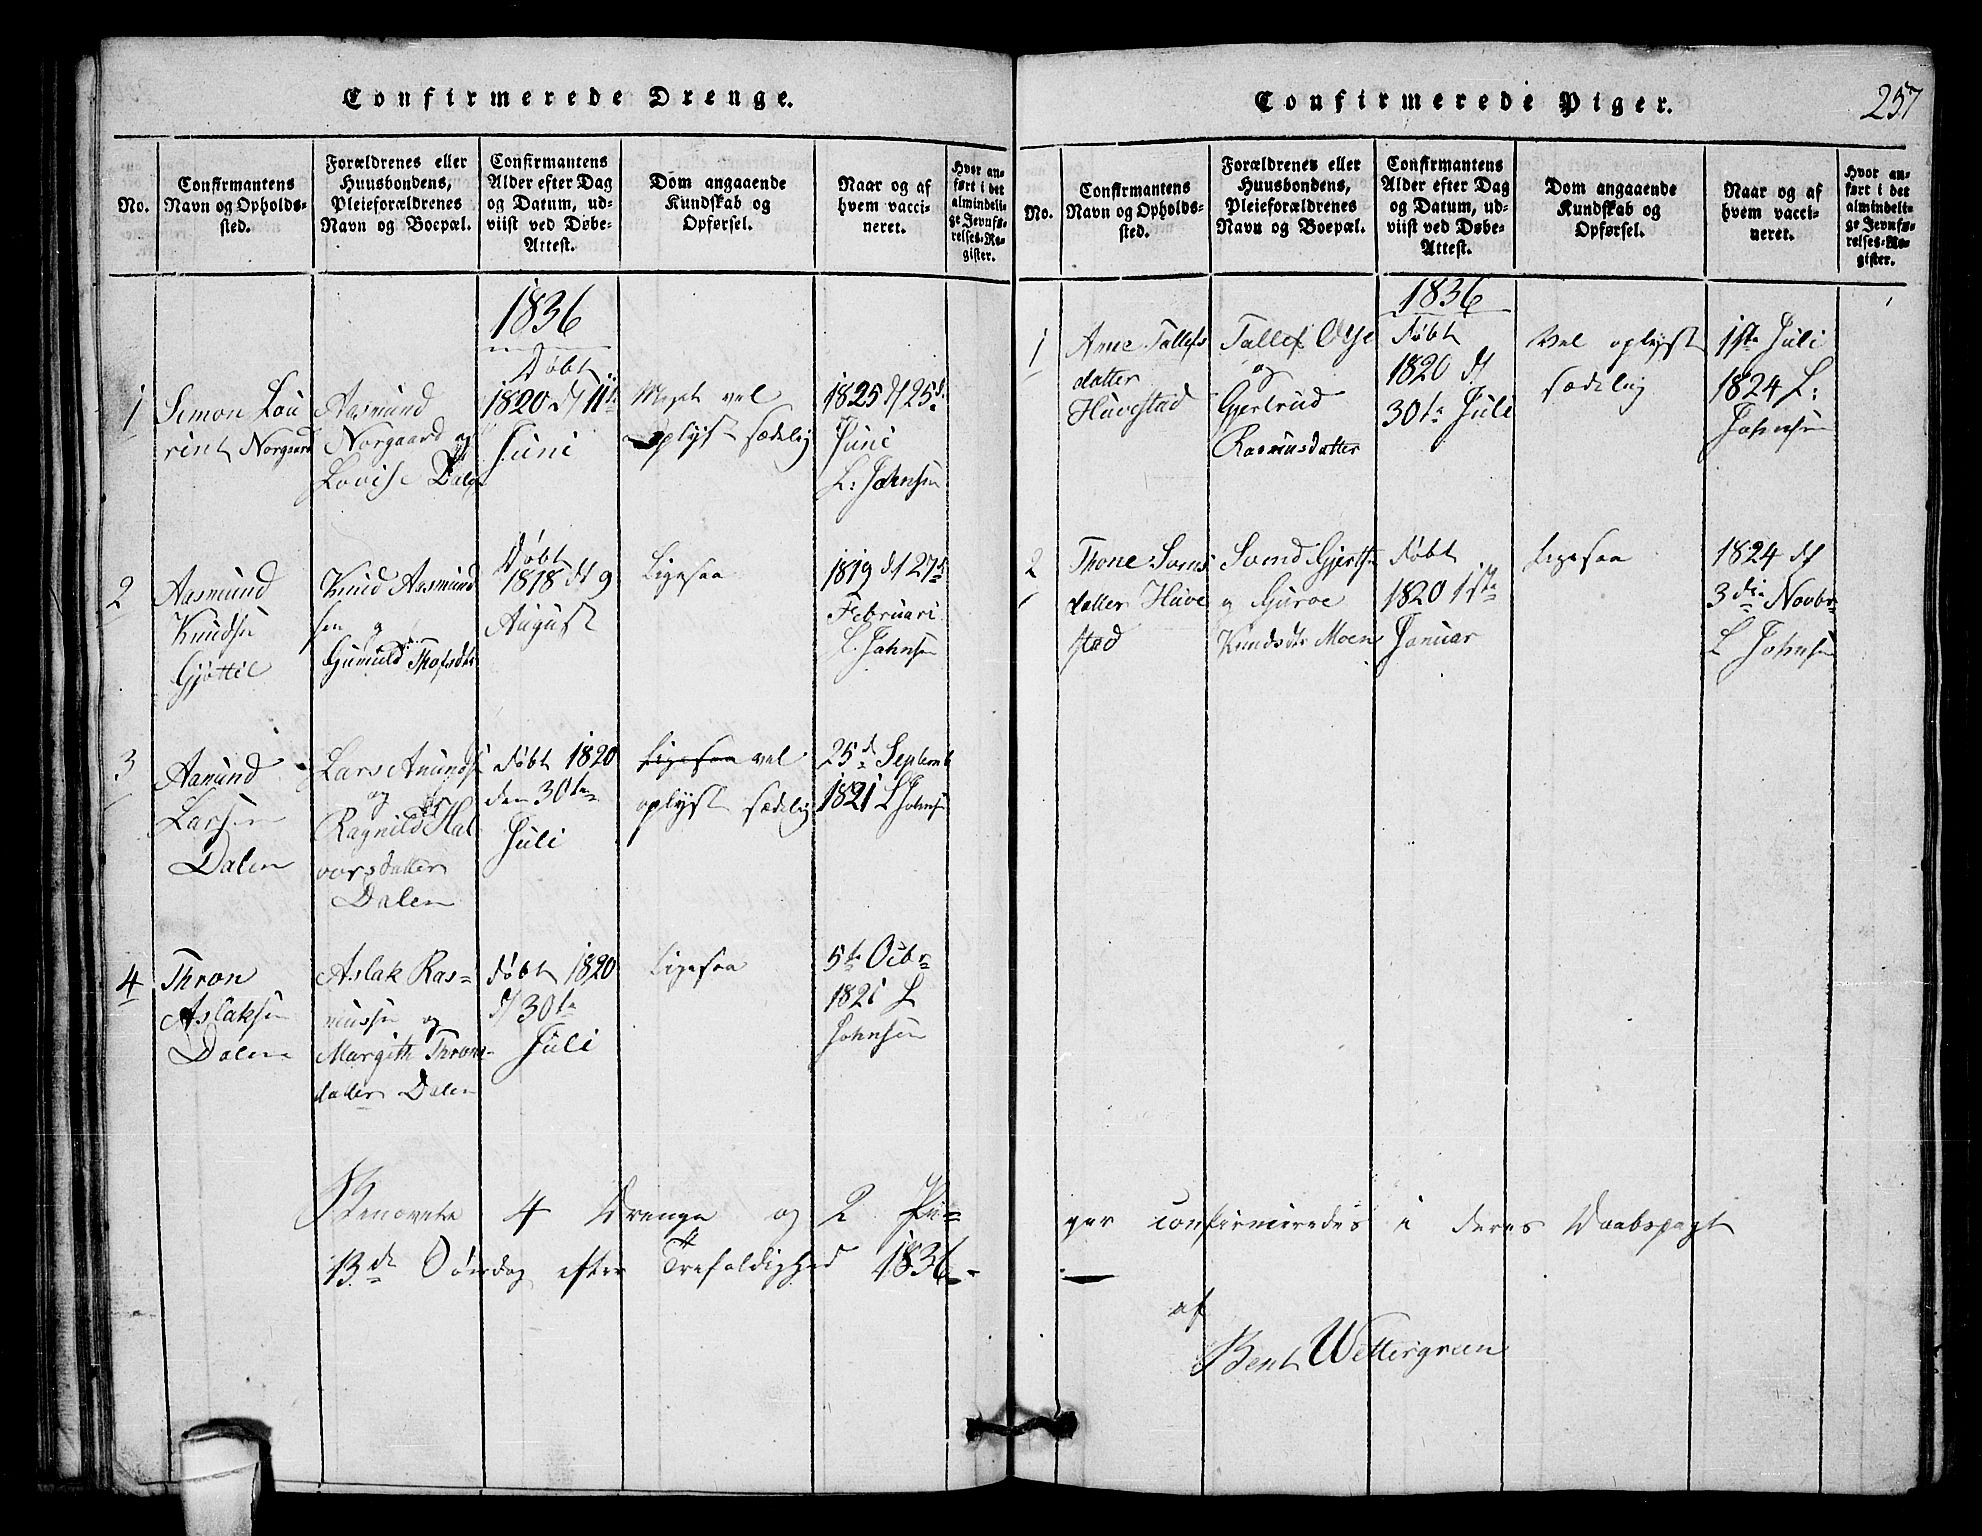 Confirmerede Drenge.
No.
Confirmantens
Navn og Opholds-
sted.
Forældrenes eller
Huusbondens,
Pleieforældrenes
Navn og Boepæl.
Confirmantens
Alder efter Dag
og Datum, ud-
viist ved Døbe-
Attest.
Dom angaaende
Kundskab og
Opførsel.
Naar og af
hvem vacci-
neret.
Hvor an-
ført i det
almindeli-
ge Jevnfø-
relses-Re-
gister.
1836
1
Simon Lou
rint Norgaard
Aasmund
Norgaard og
Lovise
Døbt
1820 d 11te
Juni
Meget vel
oplyst sædelig
1825 d 25de
Juni
L: Johnsen
2
Aasmund
Knudsen
Gjøttil
Knud Aasmund
sen og
Gunuld
Døbt
1818 d 9
August
Ligesaa
1819 d 27de
Februari
L. Johnsen
3
Aanund
Larsen
Dalen
Lars Anunds
og
Ragnild Hal
vorsdatter
Dalen
døbt 1820
den 30te
Juli
Ligesaa vel
oplyst sædelig
25de Septemb
1821 L Johnsen
4
Thron
Aslaksen
Dalen
Aslak Ras-
mussen og
Margith Throns-
datter Dalen
døbt 1820
d 30te
Juli
Ligesaa
5te Octbr
1821 L
Johnsen
4 Drenge og 2 Pi-
13de Søndag efter Trefoldighed 1836.
Confirmerede Piger.
257
No.
Confirmantens
Navn og Opholds-
sted.
Forældrenes eller
Huusbondens,
Pleieforældrenes
Navn og Boepæl.
Confirmantens
Alder efter Dag
og Datum, ud-
viist ved Døbe-
Attest.
Dom angaaende
Kundskab og
Opførsel.
Naar og af
hvem vacci-
neret.
Hvor an-
ført i det
almindeli-
ge Jevnfø-
relses-Re-
gister.
1836
1
Anne Tallefs
datter
Huvestad
Tallef
og
Gjertrud
Rasmusdatter
døbt
1820 d
30te Juli
Vel oplyst
sædelig
1ste Juli
1824 L:
Johnsen
2
Thone Svens
datter Huve
stad
Svend
og Guroe
Knudsdtr Moen
døbt
1820 1ste
Januar
Ligesaa
1824 d
3die Novbr
L Johnsen
ger confirmeredes i deres Daabspagt
af
Bent Wettergreen